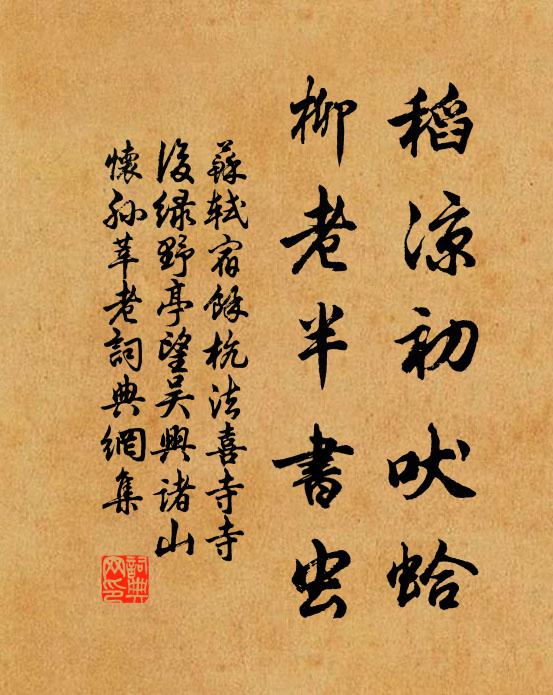 稻涼初吠蛤
柳老半書虫
蘇軾宿餘杭法喜寺寺
後綠野亭望吳興諸山
懷孫莘老詞典網集
詞典网印